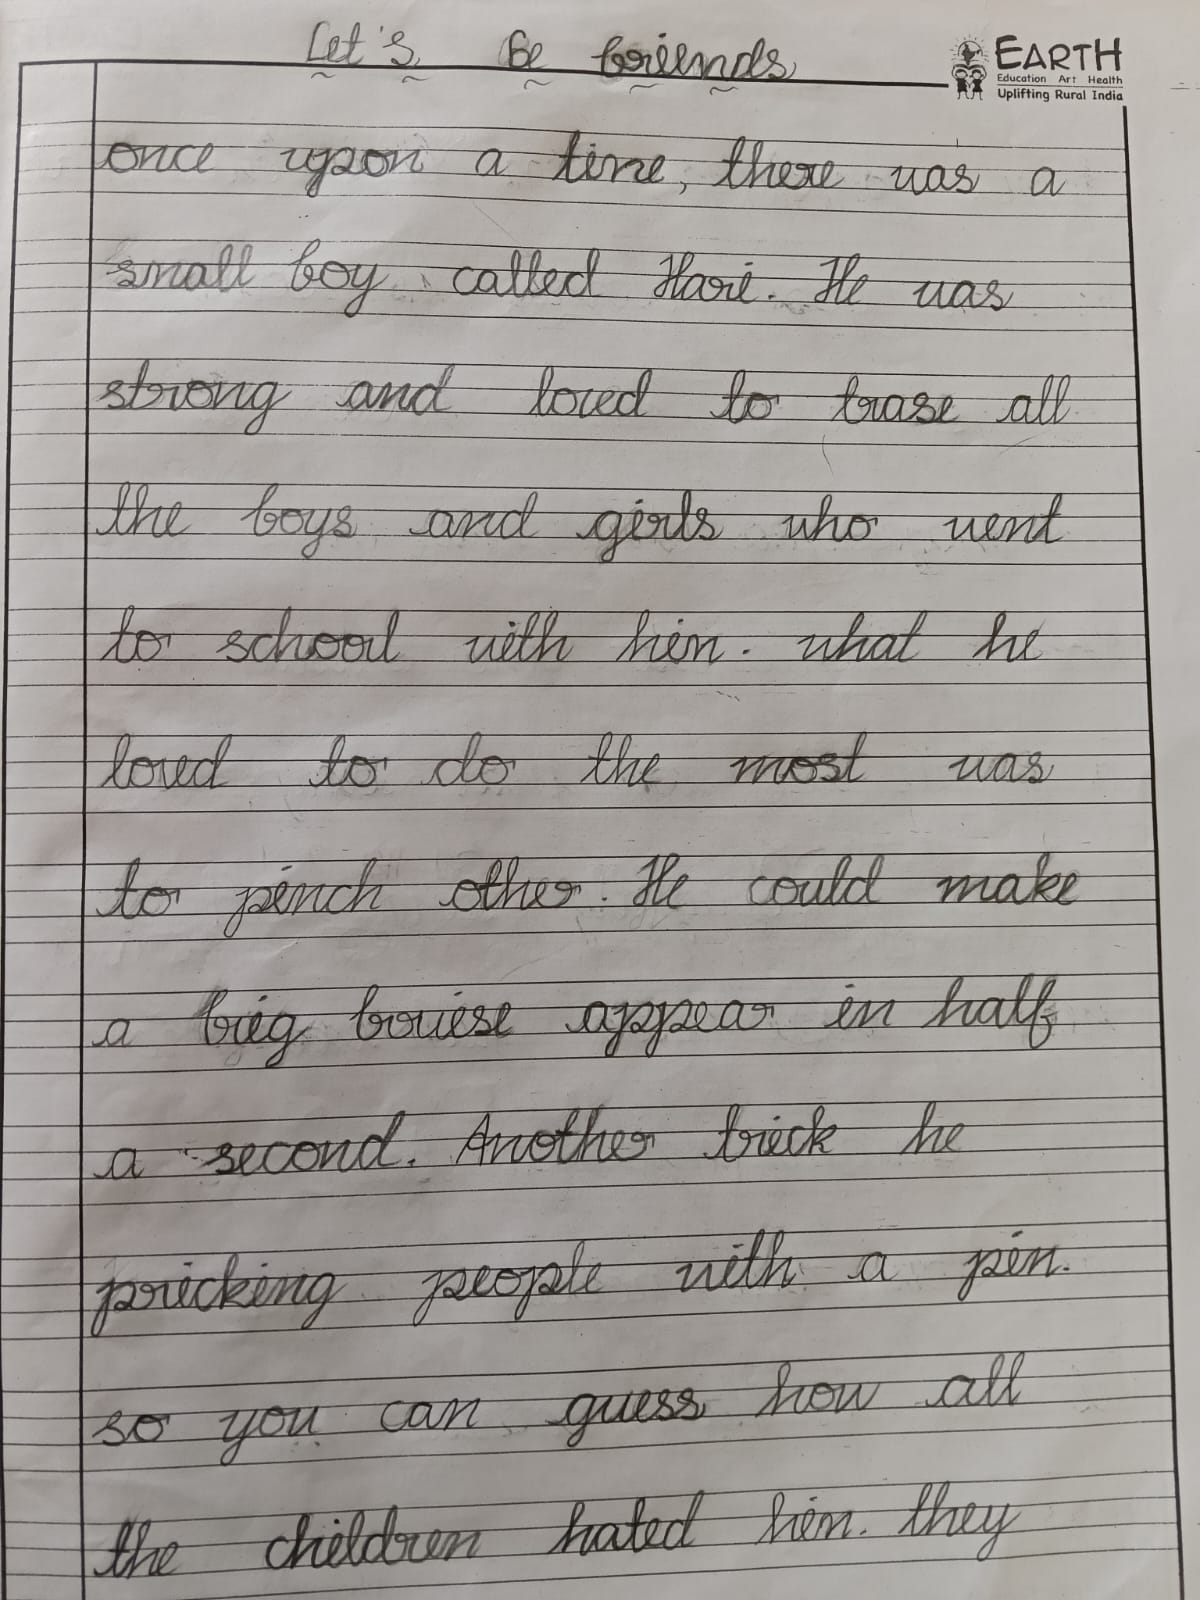 Let's Be friends
EARTH
Education Art Health
Uplifting Rural India
once upon a time, there was a
small boy called Hari. He was
strong and loved to trase all
the boys and girls who went
to school with him. what he
loved to do the most was
to pinch other. He could make
a brig bruise appear in half
a second. Another trick he
pricking people with a pin.
so you can guess how all
the children hated him. they